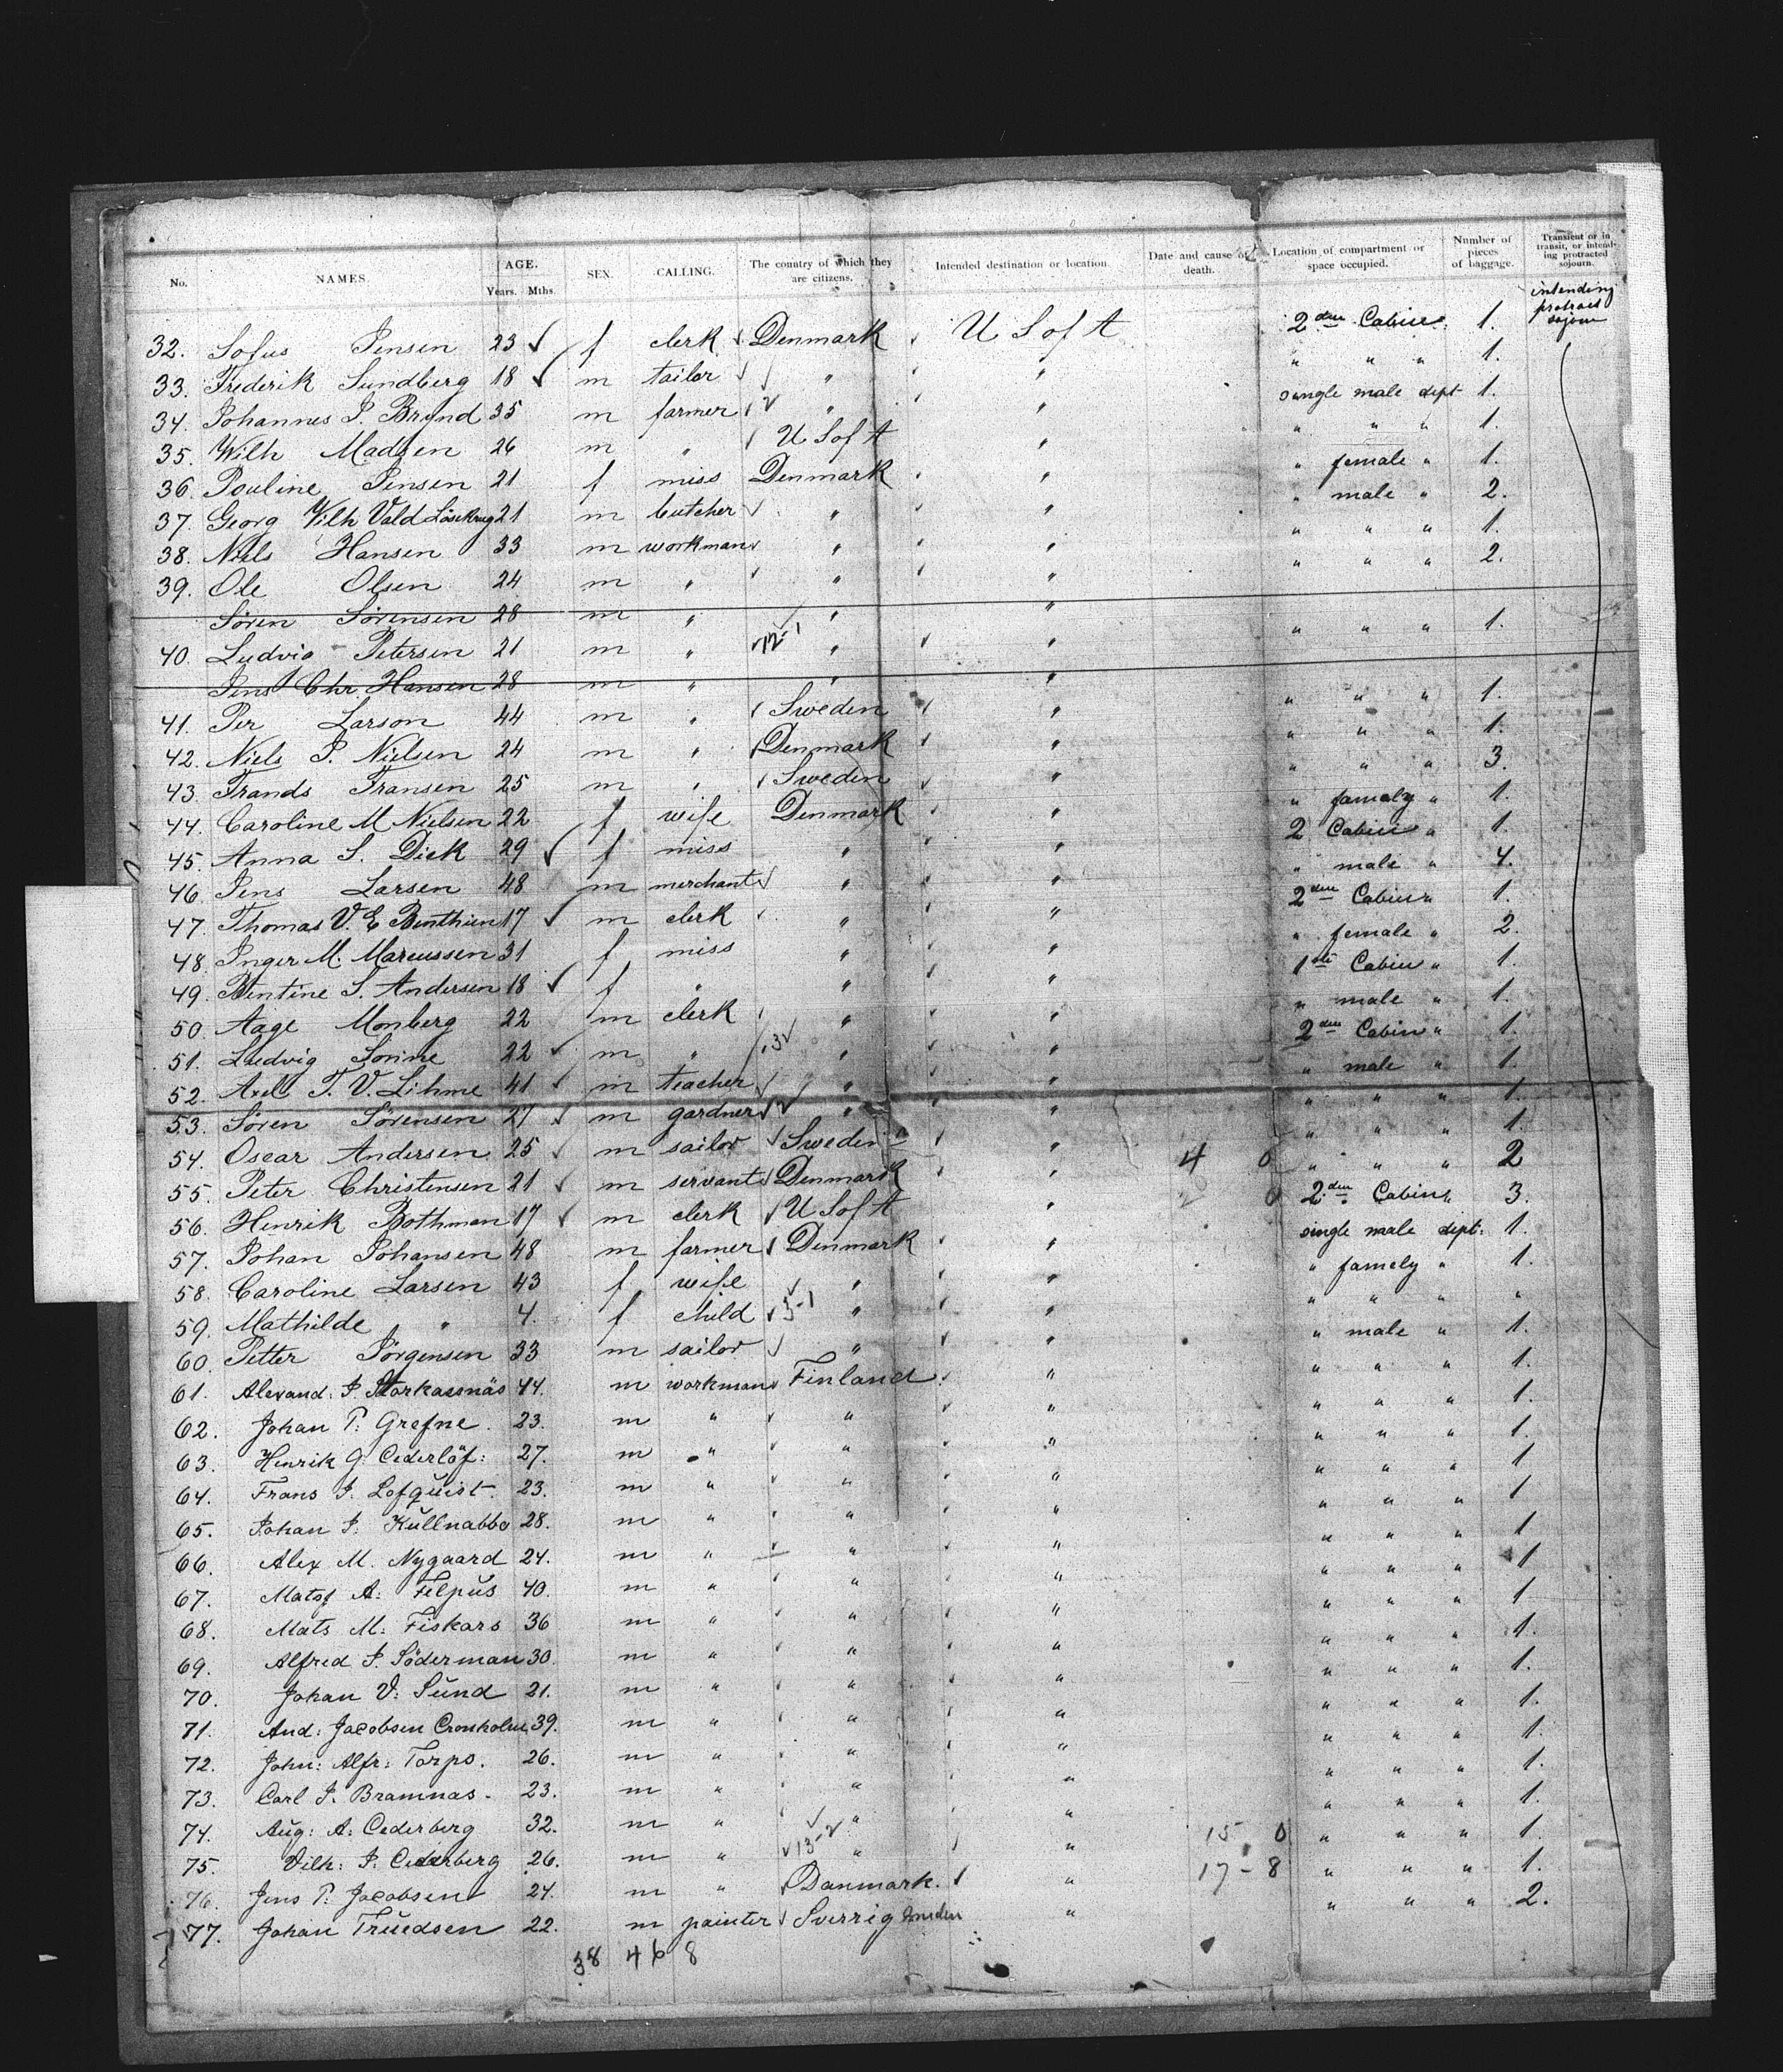 No. NAMES. AGE. Years. Mths. SEX. CALLING. The country of which they are citizens. Intended destination or location Date and cause of death. Location of compartment or space occupied. Number of pieces of baggage. Transient or in transit, or intending protracted sojourn.
32. Sofus Jensen 23 f clerk Denmark U S of A 2den Cabin 1. intending protract sojourn
33. Frederik Sundberg 18 m tailor " " " " " 1.
34. Johannes P. Brynd 35 m farmer " " single male dept 1.
35. Wilh Madsen 26 m " U S of A " " " " 1.
36. Pouline Jensen 21 f miss Denmark " " female " 1.
37. Georg Wilh Vald Lösekrug 21 m butcher " " " male " 2.
38. Niels Hansen 33 m workman " " " " " 1.
39. Ole Olsen 24 m " " " " " " 2.
Sören Sörensen 28 m " " "
40. Ludvig Petersen 21 m " 12-1 " " " " " 1.
Jens Chr. Hansen 28 m " " "
41. Per Larson 44 m " Sweden " " " " 1.
42. Niels P. Nielsen 24 m " Denmark " " " " 1.
43. Frands Fransen 25 m " Sweden " " " " 3.
44. Caroline M Nielsen 22 f wife Denmark " " famely " 1.
45. Anna S. Dick 29 f miss " " 2 Cabin " 1.
46. Jens Larsen 48 m merchant " " " male " 4.
47. Thomas V. E Benthien 17 m clerk " " 2den Cabin " 1.
48. Inger M. Marcussen 31 f miss " " " female " 2.
49. Bentine S. Andersen 18 f " " " 1ste Cabin " 1.
50. Aage Monberg 22 m clerk " " " male " 1.
51. Ludvig Sonne 22 m " 3 " " 2den Cabin " 1.
52. Axel T. V. Lihme 41 m teacher " " " male " 1.
53. Sören Sörensen 27 m gardner " " " " " 1.
54. Oscar Andersen 25 m sailor Sweden " " " " 1.
55. Peter Christensen 21 m servant Denmark " 4 0 " " " 2
56. Henrik Bothman 17 m clerk U S of A " 2den Cabin " 3.
57. Johan Johansen 48 m farmer Denmark " single male dept: 1.
58. Caroline Larsen 43 f wife " " " famely " 1.
59. Mathilde " 4. f child 3-1 " " " " " "
60. Petter Jörgensen 33 m sailor " " " male " 1.
61. Alexand: J. Storkassnäs 44. m workman Finland " " " " 1.
62. Johan P: Grefne. 23. m " " " " " " 1.
63. Henrik G. Cederlöf: 27. m " " " " " " 1.
64. Frans J. Lofquist. 23. m " " " " " " 1
65. Johan J. Kullnabba 28. m " " " " " " 1
66. Alex M. Nygaard 24. m " " " " " " 1
67. Mats A: Filpus 40. m " " " " " " 1
68. Mats M: Fiskars 36 m " " " " " " 1
69. Alfred J. Söderman 30. m " " " " " " 1.
70. Johan V: Sund 21. m " " " " " " 1.
71. And: Jacobsen Cronholm 39. m " " " " " " 1.
72. John: Alfr: Torps. 26. m " " " " " " 1.
73. Carl J. Bramnas. 23. m " " " " " " 1.
74. Aug: A: Cederberg 32. m " " " " " " 1.
75. Vilh: J. Cederberg 26. m " 13-2 " " 15 0 " " " 1.
76. Jens P: Jacobsen 24. m " Danmark. " 17-8 " " " 1.
77. Johan Truedsen 22. m painter Sverrig Sweden " " " " 2.
38 4 6 8